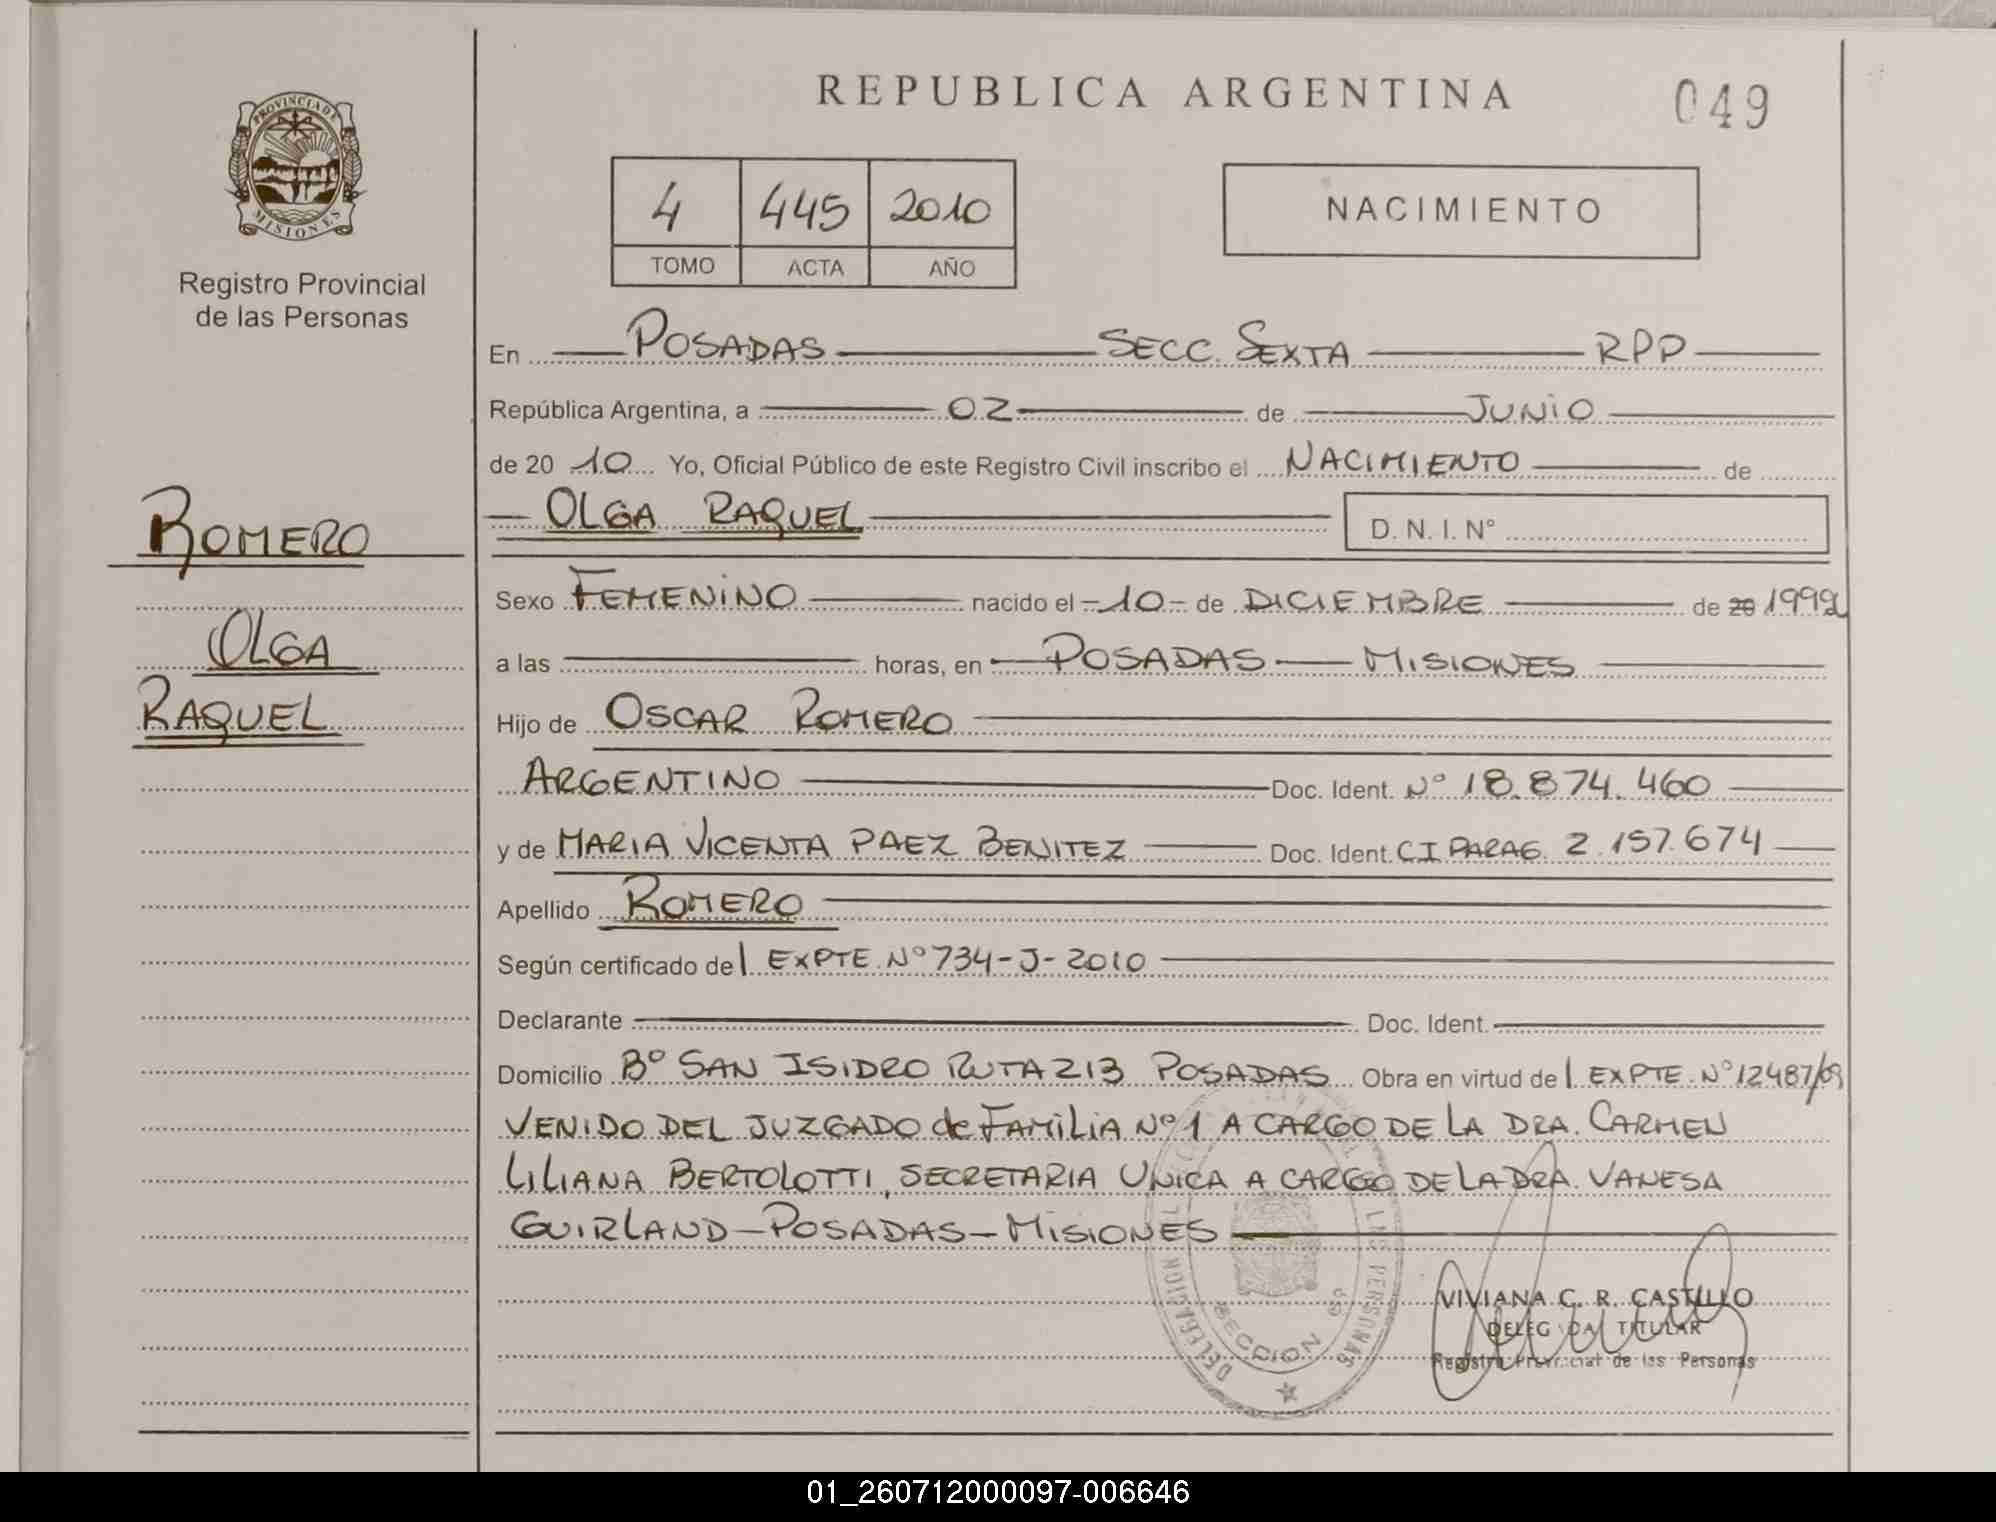 REPUBLICA ARGENTINA
049
PROVINCIA DE
MISIONES
Registro Provincial
de las Personas
4 445 2010
TOMO ACTA AÑO
NACIMIENTO
En POSADAS SECC. SEXTA RPP
República Argentina, a 02 de JUNIO
de 20 10 Yo, Oficial Público de este Registro Civil inscribo el NACIMIENTO de
OLGA RAQUEL
D. N. I. Nº
ROMERO
OLGA
RAQUEL
Sexo FEMENINO nacido el -10- de DICIEMBRE de 20 1992
a las horas, en POSADAS MISIONES
Hijo de OSCAR ROMERO
ARGENTINO Doc. Ident. Nº 18.874.460
y de MARIA VICENTA PAEZ BENITEZ Doc. Ident. CI PARAG. 2.157.674
Apellido ROMERO
Según certificado del EXPTE. Nº 734-J-2010
Declarante Doc. Ident.
Domicilio Bº SAN ISIDRO RUTA 213 POSADAS Obra en virtud del EXPTE. Nº 12487/09
VENIDO DEL JUZGADO de FAMILIA Nº 1 A CARGO DE LA DRA. CARMEN
LILIANA BERTOLOTTI, SECRETARIA UNICA A CARGO DE LA DRA. VANESA
GUIRLAND-POSADAS-MISIONES
DELEGACION
LAS PERSONAS
SECCION 6ª
VIVIANA C. R. CASTILLO
DELEGADA TITULAR
Registro Provincial de las Personas
01_260712000097-006646